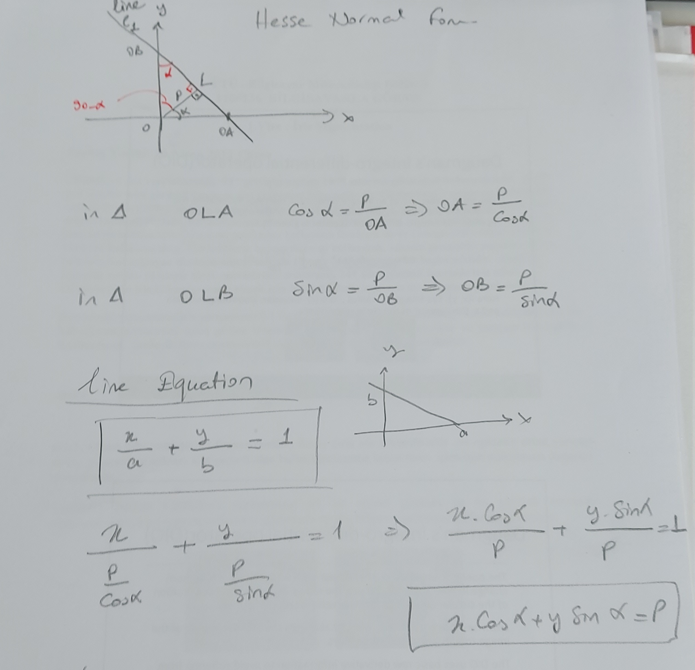 Hesse Normal Form
line y
L1
OB
α
L
90-α
P
α
O
OA
x
in Δ OLA cos α = P/OA ⇒ OA = P/cosα
in Δ OLB sinα = P/OB ⇒ OB = P/sinα
line Equation
y
b
a
x
x/a + y/b = 1
x/(P/cosα) + y/(P/sinα) = 1 ⇒ x.cosα/P + y.sinα/P = 1
x.cosα + y sin α = P